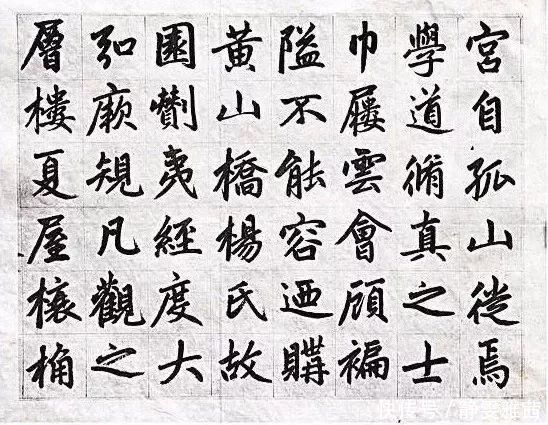 宮自孤山徙焉
學道脩真之士
巾屨雲會頋褊
隘不能容廼購
黃山橋楊氏故
園劗夷經度大
弘厥規凡觀之
層樓夏屋榱桷